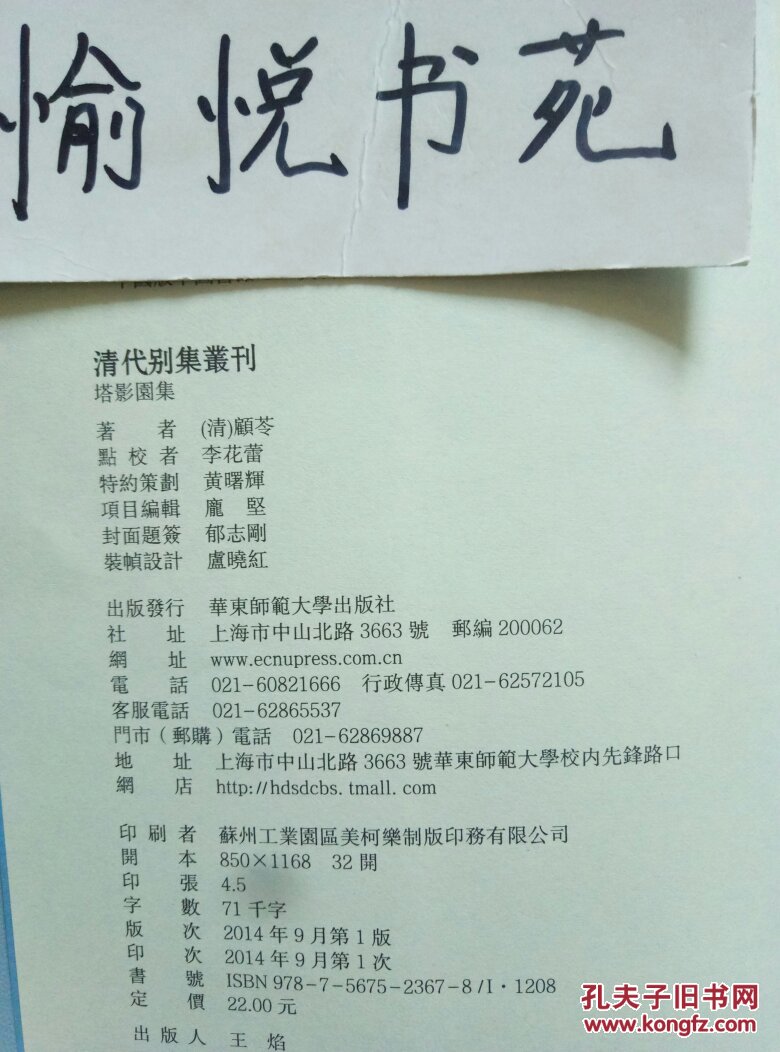 愉悦书苑
清代别集叢刊
塔影園集
著者 (清)顧苓
點校者 李花蕾
特約策劃 黄曙輝
項目編輯 龐堅
封面題簽 郁志剛
裝幀設計 盧曉紅
出版發行 華東師範大學出版社
社址 上海市中山北路 3663 號 郵編 200062
網址 www.ecnupress.com.cn
電話 021-60821666 行政傳真 021-62572105
客服電話 021-62865537
門市(郵購)電話 021-62869887
地址 上海市中山北路 3663 號華東師範大學校内先鋒路口
網店 http://hdsdcbs.tmall.com
印刷者 蘇州工業園區美柯樂制版印務有限公司
開本 850×1168 32 開
印張 4.5
字數 71 千字
版次 2014 年 9 月第 1 版
印次 2014 年 9 月第 1 次
書號 ISBN 978-7-5675-2367-8/I·1208
定價 22.00 元
出版人 王焰
孔夫子旧书网
www.kongfz.com